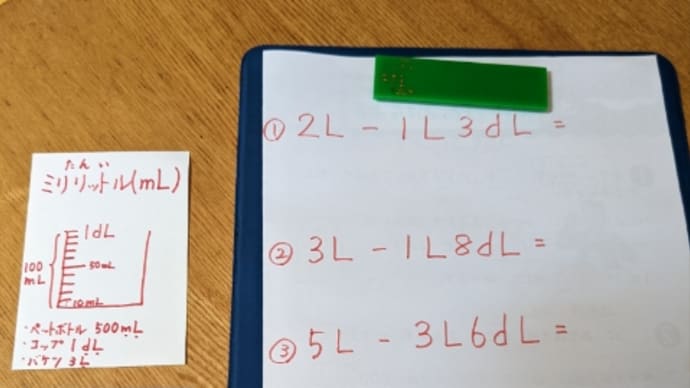 たんい
ミリリットル(mL)
1dL
100
mL
50mL
10mL
・ペットボトル 500mL
・コップ 1dL
・バケツ 3L
① 2L - 1L 3dL =
② 3L - 1L8dL =
③ 5L - 3L6dL =